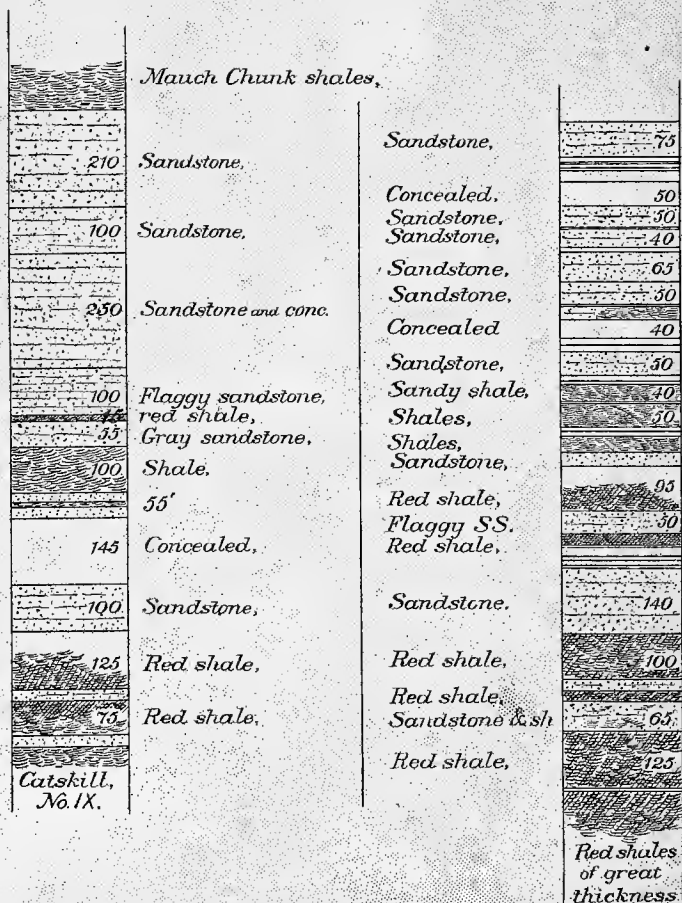 Mauch Chunk shales,
210 Sandstone,
100 Sandstone,
250 Sandstone and conc.
100 Flaggy sandstone,
15 red shale,
55 Gray sandstone,
100 Shale,
55'
145 Concealed,
100 Sandstone,
125 Red shale,
75 Red shale,
Catskill,
No. IX.
Sandstone, 75
Concealed, 50
Sandstone, 50
Sandstone, 40
Sandstone, 65
Sandstone, 50
Concealed 40
Sandstone, 50
Sandy shale, 40
Shales, 50
Shales,
Sandstone,
Red shale, 95
Flaggy SS. 50
Red shale,
Sandstone. 140
Red shale, 100
Red shale,
Sandstone & sh 65
Red shale, 125
Red shales
of great
thickness